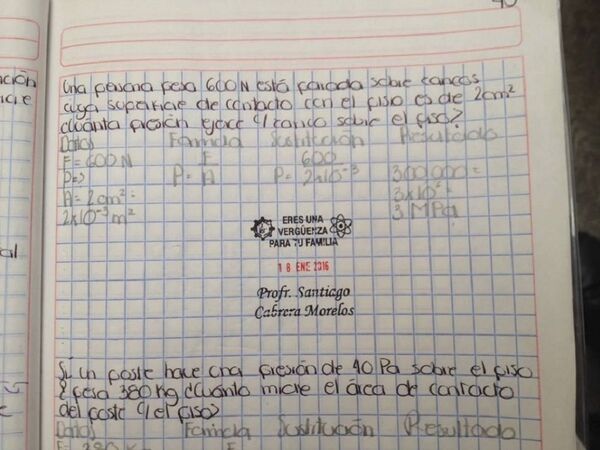 ción
cie
al
Una persona pesa 600 N está parada sobre tancos
cuya superficie de contacto con el piso es de 2cm²
¿Cuánta presión ejerce c/tanco sobre el piso?
Datos Formula Sustitución Resultado
F = 600 N
P=?
A = 2cm² =
2x10⁻³ m²
P = F/A
P = 600/2x10⁻³
300 000 =
3x10⁵ =
3 MPa
ERES UNA
VERGÜENZA
PARA TU FAMILIA
18 ENE 2016
Profr. Santiago
Cabrera Morelos
Si un poste hace una presión de 40 Pa sobre el piso
& pesa 380 Kg ¿Cuánto mide el área de contacto
del poste c/ el piso?
Datos Formula Sustitución Resultado